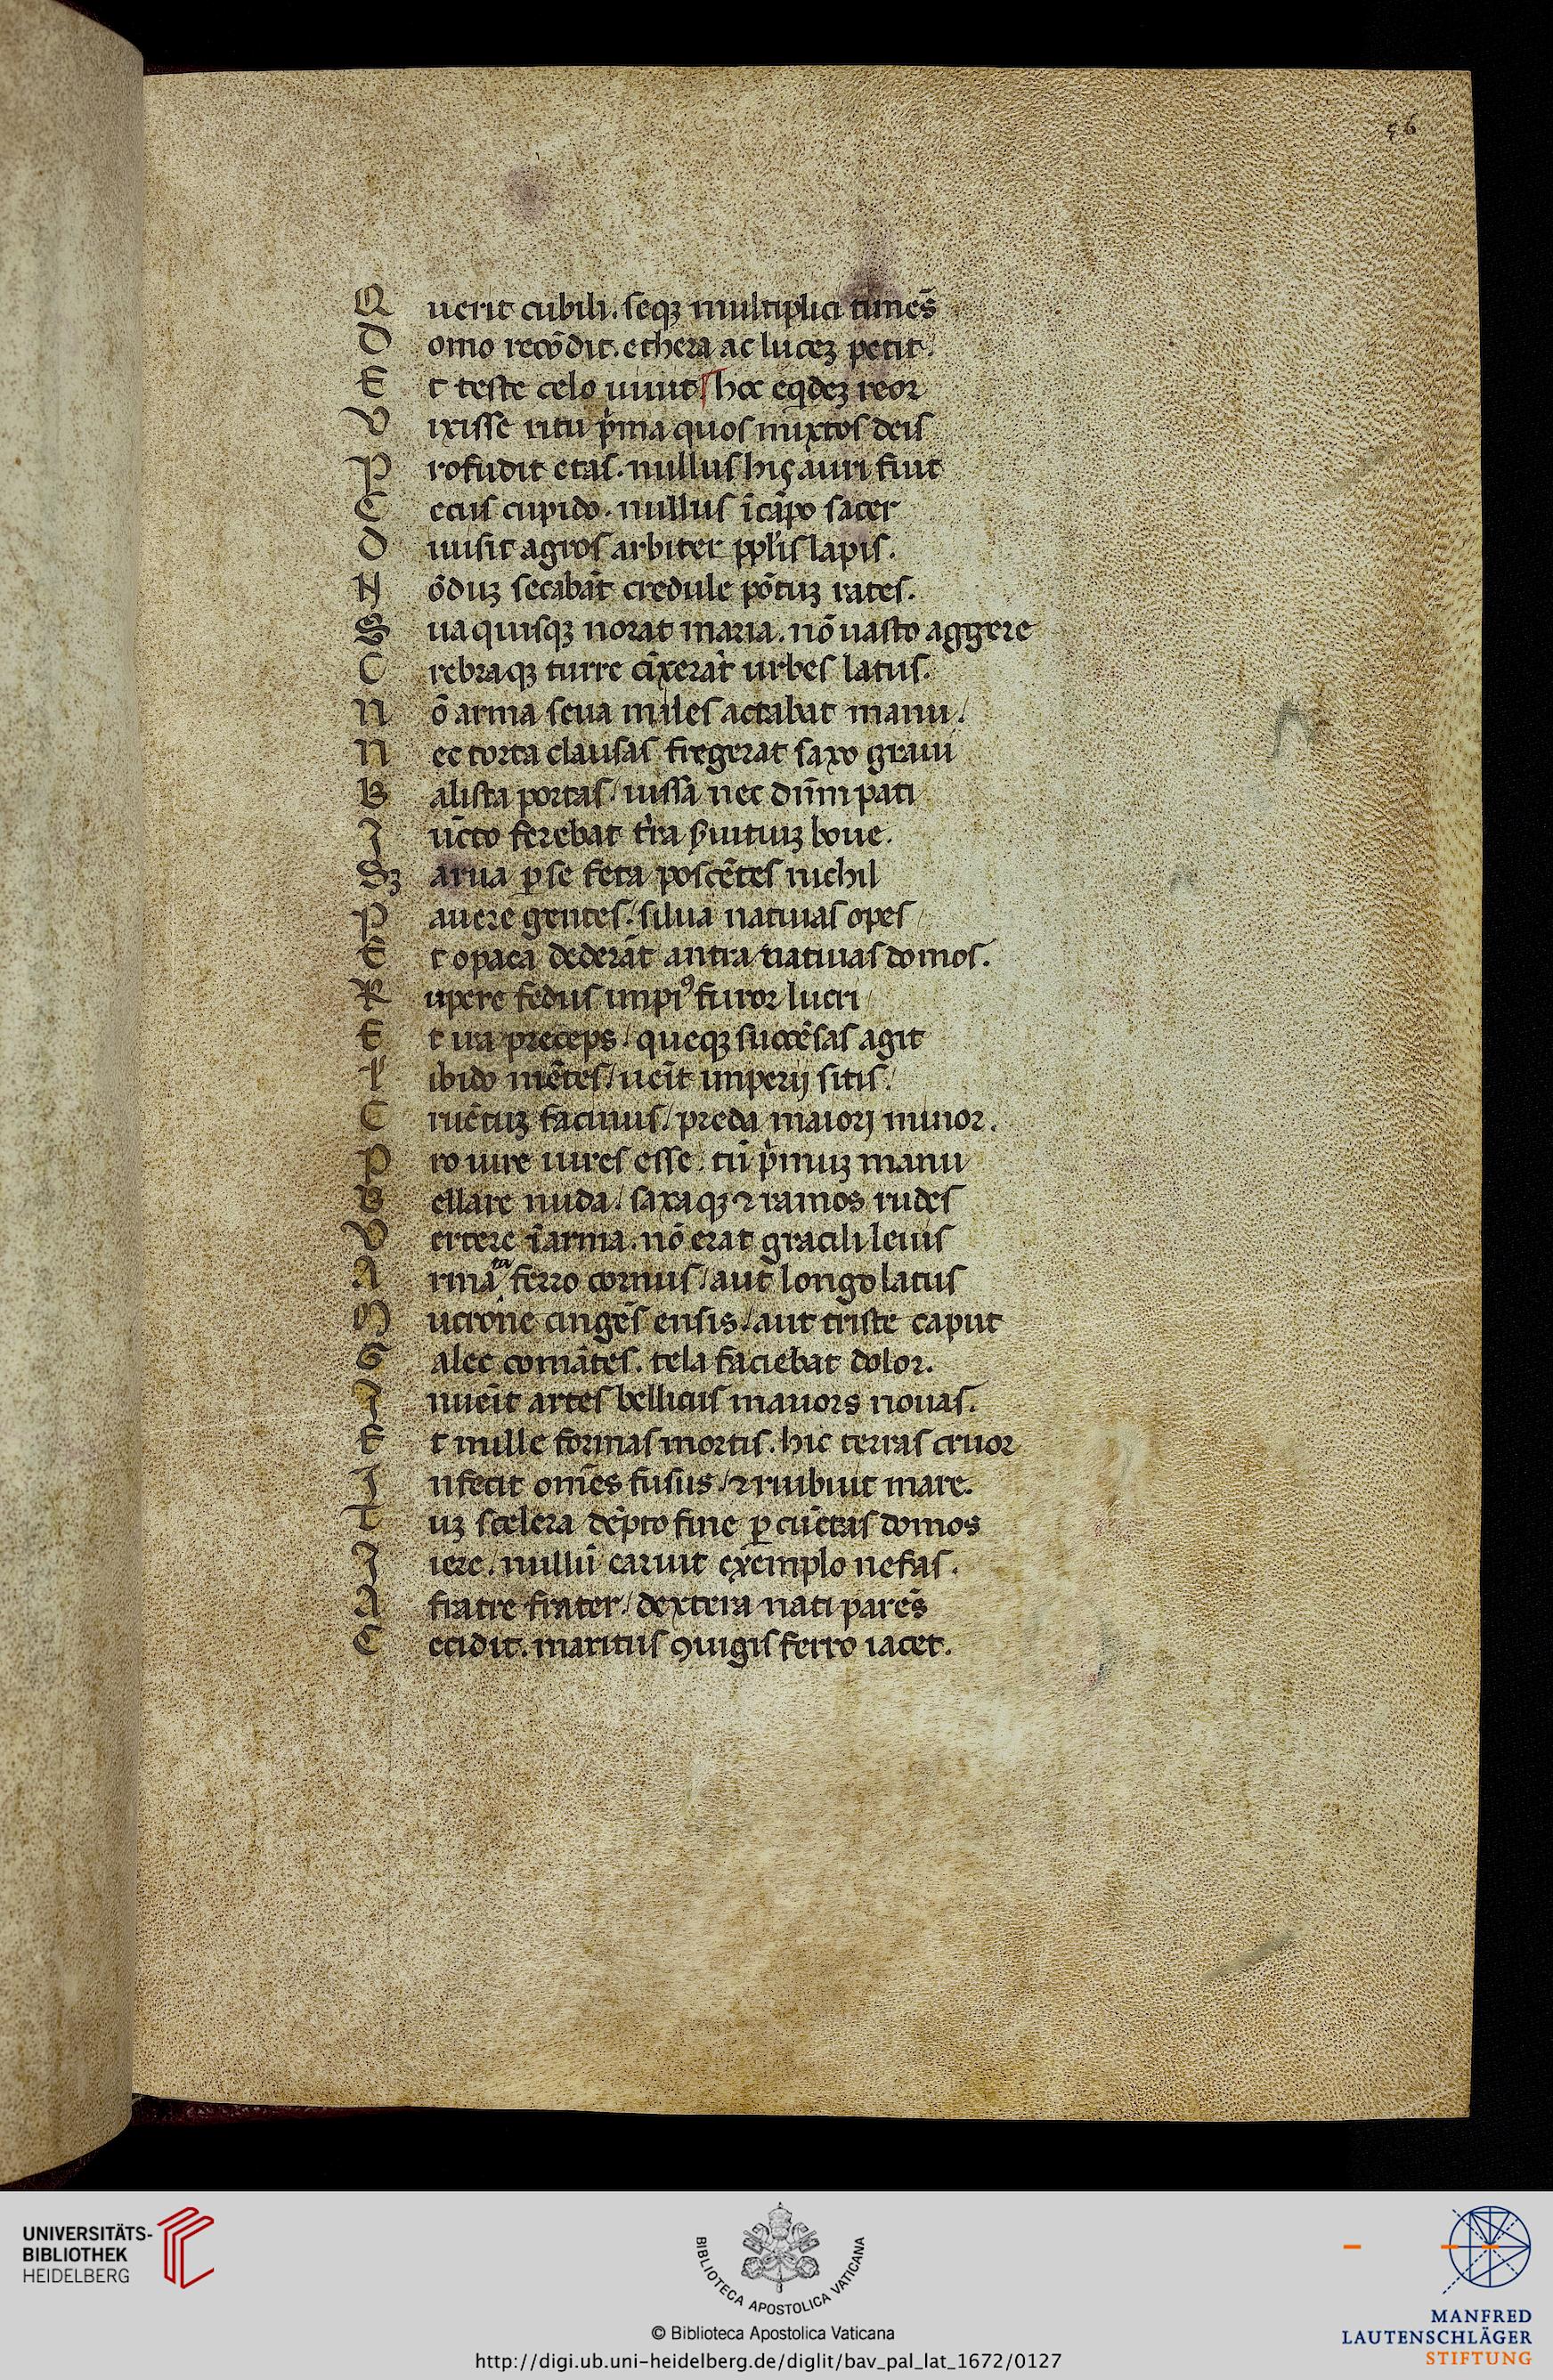 56
Q uerit cubili. seqꝫ multiplici timēs
D omo recōdit. ethera ac luceꝫ petit.
E t teste celo uiuit / hoc eqdeꝫ reor
V ixisse ritu pͥma quos mixtos deis
P rofudit etas. nullus hiç auri fuit
C ecus cupido. nullus ī cāpo sacer
D iuisit agros arbiter ppl'is lapis.
N ōduꝫ secabāt credule pōtuꝫ rates.
S ua quisqꝫ norat maria. nō uasto aggere
C rebraqꝫ turre cīxerāt urbes latus.
N ō arma seua miles actabat manu.
N ec torta clausas fregerat saxo graui
B alista portas / iussā nec dn̄m pati
J ūcto ferebat tͥra ẜuituꝫ boue.
Sꝫ arua ꝑ se feta poscētes nichil
P auere gentes. / silua natiuas opes /
E t opaca dederāt antra natiuas domos.
R upere fedus impiꝰ furor lucri /
E t ira preceps / queqꝫ succēsas agit
L ibido mētes / ueīt imperij sitis /
C ruētuꝫ facinus. / preda maiorj minor.
P ro iure uires esse. tū pͥmuꝫ manu
B ellare nuda / saxaqꝫ ⁊ ramos rudes
V ertere ī arma. nō erat gracili leuis
A rmata ferro cornus / aut longo latus
M ucrone cingēs ensis. / aut triste caput
G alee comātes. tela faciebat dolor.
J nueīt artes bellicus mauors nouas.
E t mille formas mortis. hic terras cruor
J nfecit om̄es fusus / ⁊ ruibuit mare.
T uꝫ scelera dēpto fine ꝑ cūctas domos
J iere / nullū caruit exemplo nefas.
A fratre frater / dextera nati parēs
C ecidit. maritus ꝯiugis ferro iacet.
UNIVERSITÄTS-
BIBLIOTHEK
HEIDELBERG
BIBLIOTECA APOSTOLICA VATICANA
© Biblioteca Apostolica Vaticana
http://digi.ub.uni-heidelberg.de/diglit/bav_pal_lat_1672/0127
MANFRED
LAUTENSCHLÄGER
STIFTUNG